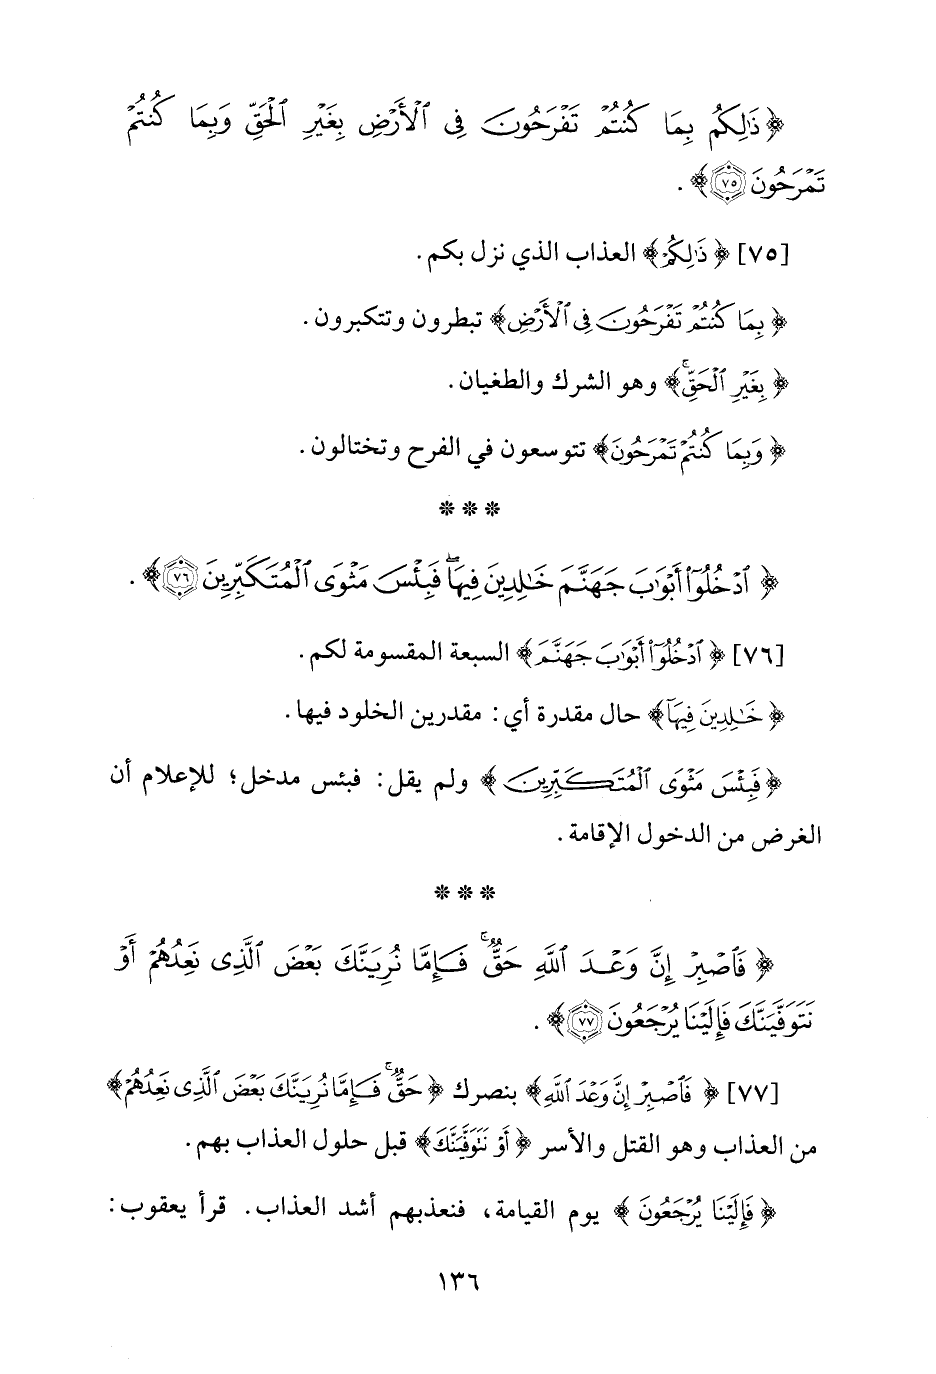 ﴿ ذَٰلِكُم بِمَا كُنتُمْ تَفْرَحُونَ فِى ٱلْأَرْضِ بِغَيْرِ ٱلْحَقِّ وَبِمَا كُنتُمْ
تَمْرَحُونَ ۝٧٥﴾ .
[٧٥] ﴿ ذَٰلِكُم﴾ العذاب الذي نزل بكم .
﴿ بِمَا كُنتُمْ تَفْرَحُونَ فِى ٱلْأَرْضِ﴾ تبطرون وتتكبرون .
﴿ بِغَيْرِ ٱلْحَقِّۚ﴾ وهو الشرك والطغيان .
﴿ وَبِمَا كُنتُمْ تَمْرَحُونَ﴾ تتوسعون في الفرح وتختالون .
* * *
﴿ ٱدْخُلُوٓا۟ أَبْوَٰبَ جَهَنَّمَ خَٰلِدِينَ فِيهَاۖ فَبِئْسَ مَثْوَى ٱلْمُتَكَبِّرِينَ ۝٧٦﴾ .
[٧٦] ﴿ ٱدْخُلُوٓا۟ أَبْوَٰبَ جَهَنَّمَ﴾ السبعة المقسومة لكم .
﴿ خَٰلِدِينَ فِيهَآ﴾ حال مقدرة أي : مقدرين الخلود فيها .
﴿ فَبِئْسَ مَثْوَى ٱلْمُتَكَبِّرِينَ ﴾ ولم يقل : فبئس مدخل ؛ للإعلام أن
الغرض من الدخول الإقامة .
* * *
﴿ فَٱصْبِرْ إِنَّ وَعْدَ ٱللَّهِ حَقٌّۚ فَإِمَّا نُرِيَنَّكَ بَعْضَ ٱلَّذِى نَعِدُهُمْ أَوْ
نَتَوَفَّيَنَّكَ فَإِلَيْنَا يُرْجَعُونَ ۝٧٧﴾ .
[٧٧] ﴿ فَٱصْبِرْ إِنَّ وَعْدَ ٱللَّهِ﴾ بنصرك ﴿ حَقٌّۚ فَإِمَّا نُرِيَنَّكَ بَعْضَ ٱلَّذِى نَعِدُهُمْ﴾
من العذاب وهو القتل والأسر ﴿ أَوْ نَتَوَفَّيَنَّكَ﴾ قبل حلول العذاب بهم .
﴿ فَإِلَيْنَا يُرْجَعُونَ ﴾ يوم القيامة ، فنعذبهم أشد العذاب . قرأ يعقوب :
١٣٦